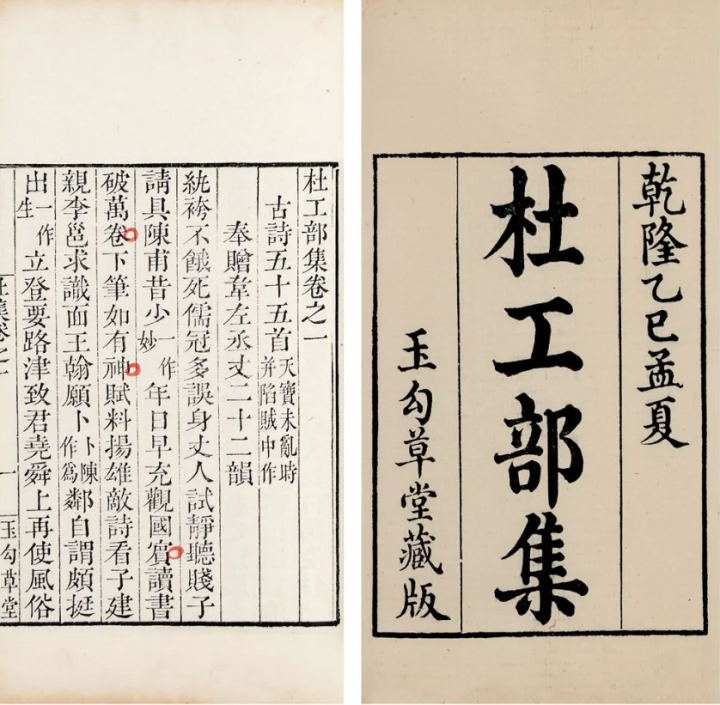 乾隆乙巳孟夏
杜工部集
玉勾草堂藏版
杜工部集卷之一
古詩五十五首天寶未亂時并陷賊中作
奉贈韋左丞丈二十二韻
紈袴不餓死儒冠多誤身丈人試靜聽賤子
請具陳甫昔少一作妙年日早充觀國賓讀書
破萬卷下筆如有神賦料揚雄敵詩看子建
親李邕求識面王翰願卜卜陳作爲鄰自謂頗挺
出一作生立登要路津致君堯舜上再使風俗
杜集卷之一 一 玉勾草堂